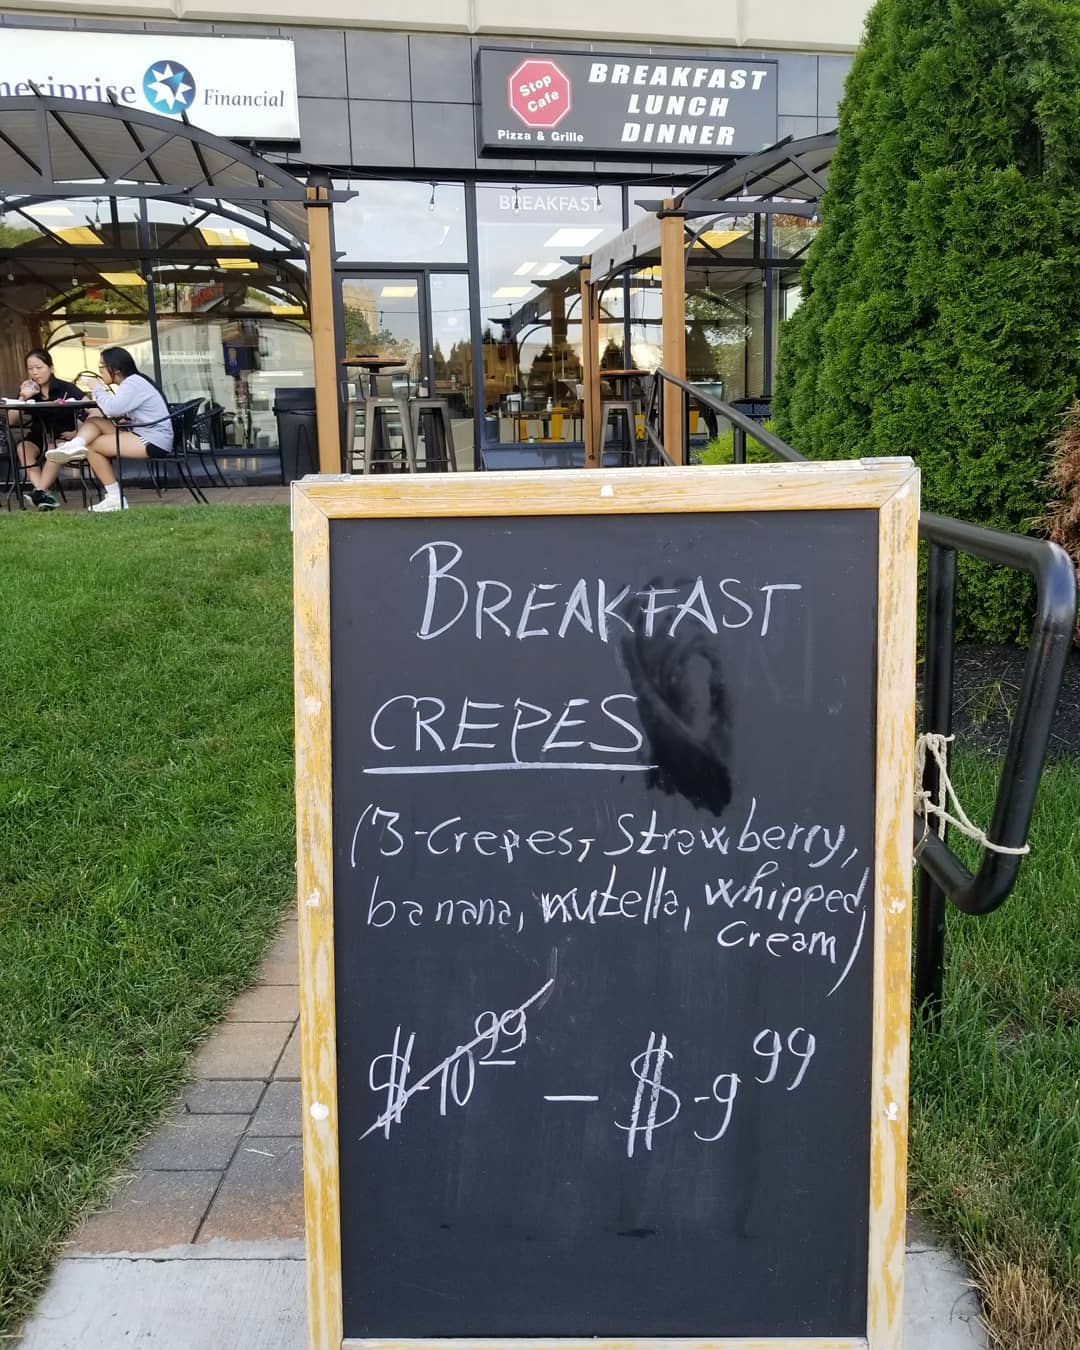 meriprise Financial
Stop
Cafe
Pizza & Grille
BREAKFAST
LUNCH
DINNER
BREAKFAST
BREAKFAST
CREPES
(3-Crepes, Strawberry,
banana, nutella, whipped
cream)
$-10 99 — $-9 99